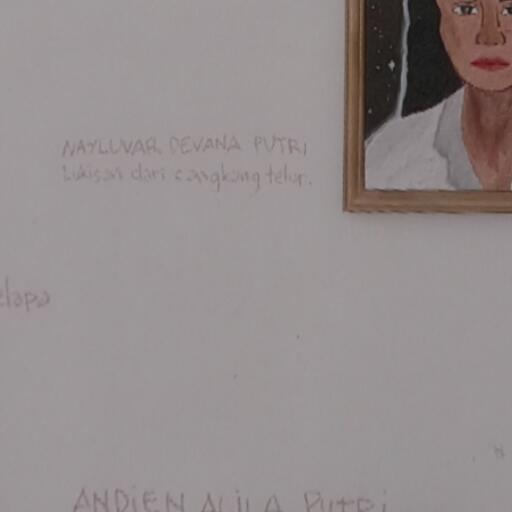 NAYLUVAR DEVANA PUTRI
Lukisan dari cangkang telur.
elapa
ANDIEN ALILA PUTRI